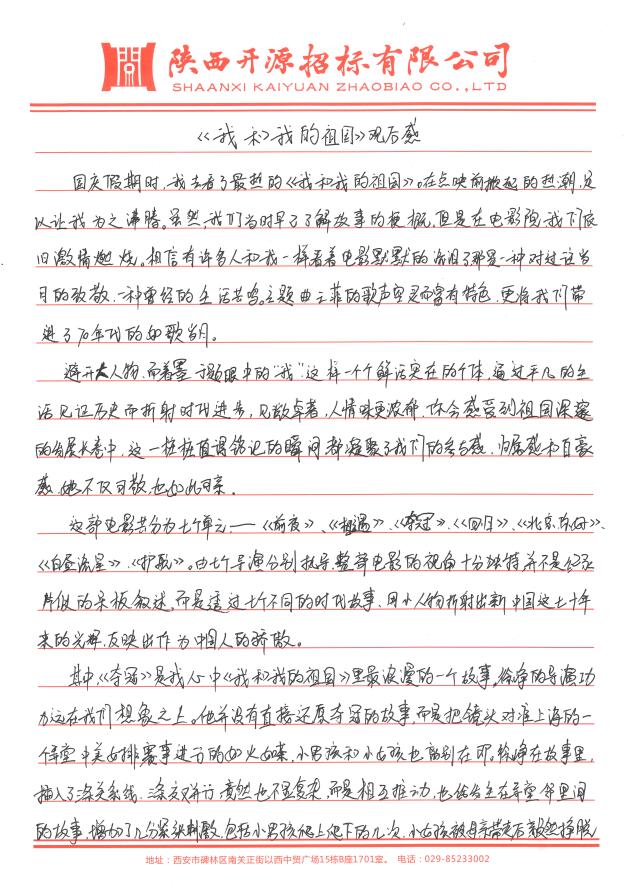 陕西开源招标有限公司
SHAANXI KAIYUAN ZHAOBIAO CO.,LTD
《我和我的祖国》观后感
国庆假期时,我去看了最热的《我和我的祖国》。在点映前掀起的热潮,足
以让我为之沸腾。虽然,我们当时早了了解故事的梗概,但是在电影院,我们依
旧激情燃烧。相信有许多人和我一样看着电影默默的流泪了那是一种对过往岁
月的致敬,一种曾经的生活共鸣。主题曲王菲的歌声空灵而富有特色,更将我们带
进了70年代的如歌岁月。
避开大人物,而着墨于数眼中的“我”这样一个个鲜活实在的个体,通过平凡的生
活见证历史而折射时代进步,见微卓著,人情味更浓郁,你会感受到祖国深邃
的发展长卷中,这一桩桩值得铭记的瞬间都凝聚了我们的参与感、归属感和自豪
感,她不仅可敬,也如此可亲。
这部电影共分为七个单元,——《前夜》、《相遇》、《夺冠》、《回归》、《北京你好》、
《白昼流星》、《护航》。由七个导演分别执导,整部电影的视角十分独特,并不是纪录
片似的呆板叙述,而是透过七个不同的时代故事、用小人物折射出新中国这七十年
来的光辉,反映出作为中国人的骄傲。
其中,《夺冠》是我心中《我和我的祖国》里最浪漫的一个故事。徐峥的导演功
力远在我们想象之上。他并没有直接还原夺冠的故事,而是把镜头对准上海的一
个弄堂中美女排赛事进行的如火如荼,小男孩和小女孩也离别在即。徐峥在故事里,
插入了多条线,多条双并行竟然也不显复杂,而是相互推动,也结合生在弄堂邻里间
的故事,增加了几分紧张刺激,包括小男孩爬上爬下的几次,小女孩被母亲带走后毅然挣脱
地址:西安市碑林区南关正街以西中贸广场15栋B座1701室。 电话:029-85233002